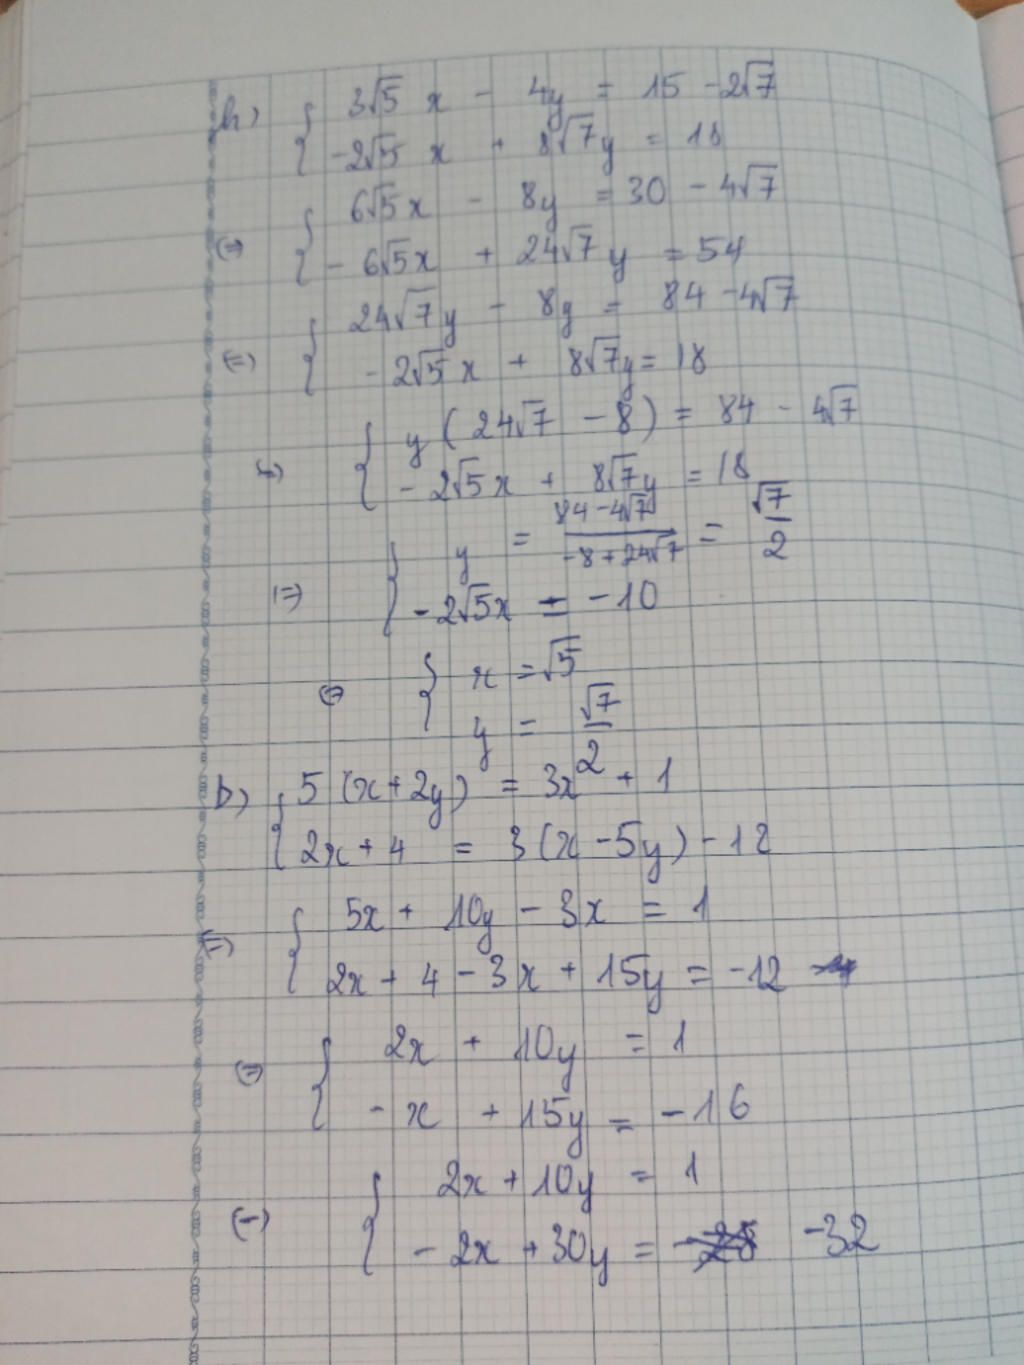 h) { 3√5 x - 4y = 15 - 2√7
-2√5 x + 8√7y = 18
(=) { 6√5x - 8y = 30 - 4√7
- 6√5x + 24√7 y = 54
(=) { 24√7y - 8y = 84 - 4√7
- 2√5 x + 8√7y = 18
(=) { y ( 24√7 - 8 ) = 84 - 4√7
- 2√5x + 8√7y = 18
(=) { y = (84 - 4√7)/(-8 + 24√7) = √7/2
- 2√5x = -10
(=) { x = √5
y = √7/2
b) { 5 (x + 2y) = 3x + 1
2x + 4 = 3(x - 5y) - 12
(=) { 5x + 10y - 3x = 1
2x + 4 - 3x + 15y = -12
(=) { 2x + 10y = 1
- x + 15y = - 16
(=) { 2x + 10y = 1
- 2x + 30y = -32